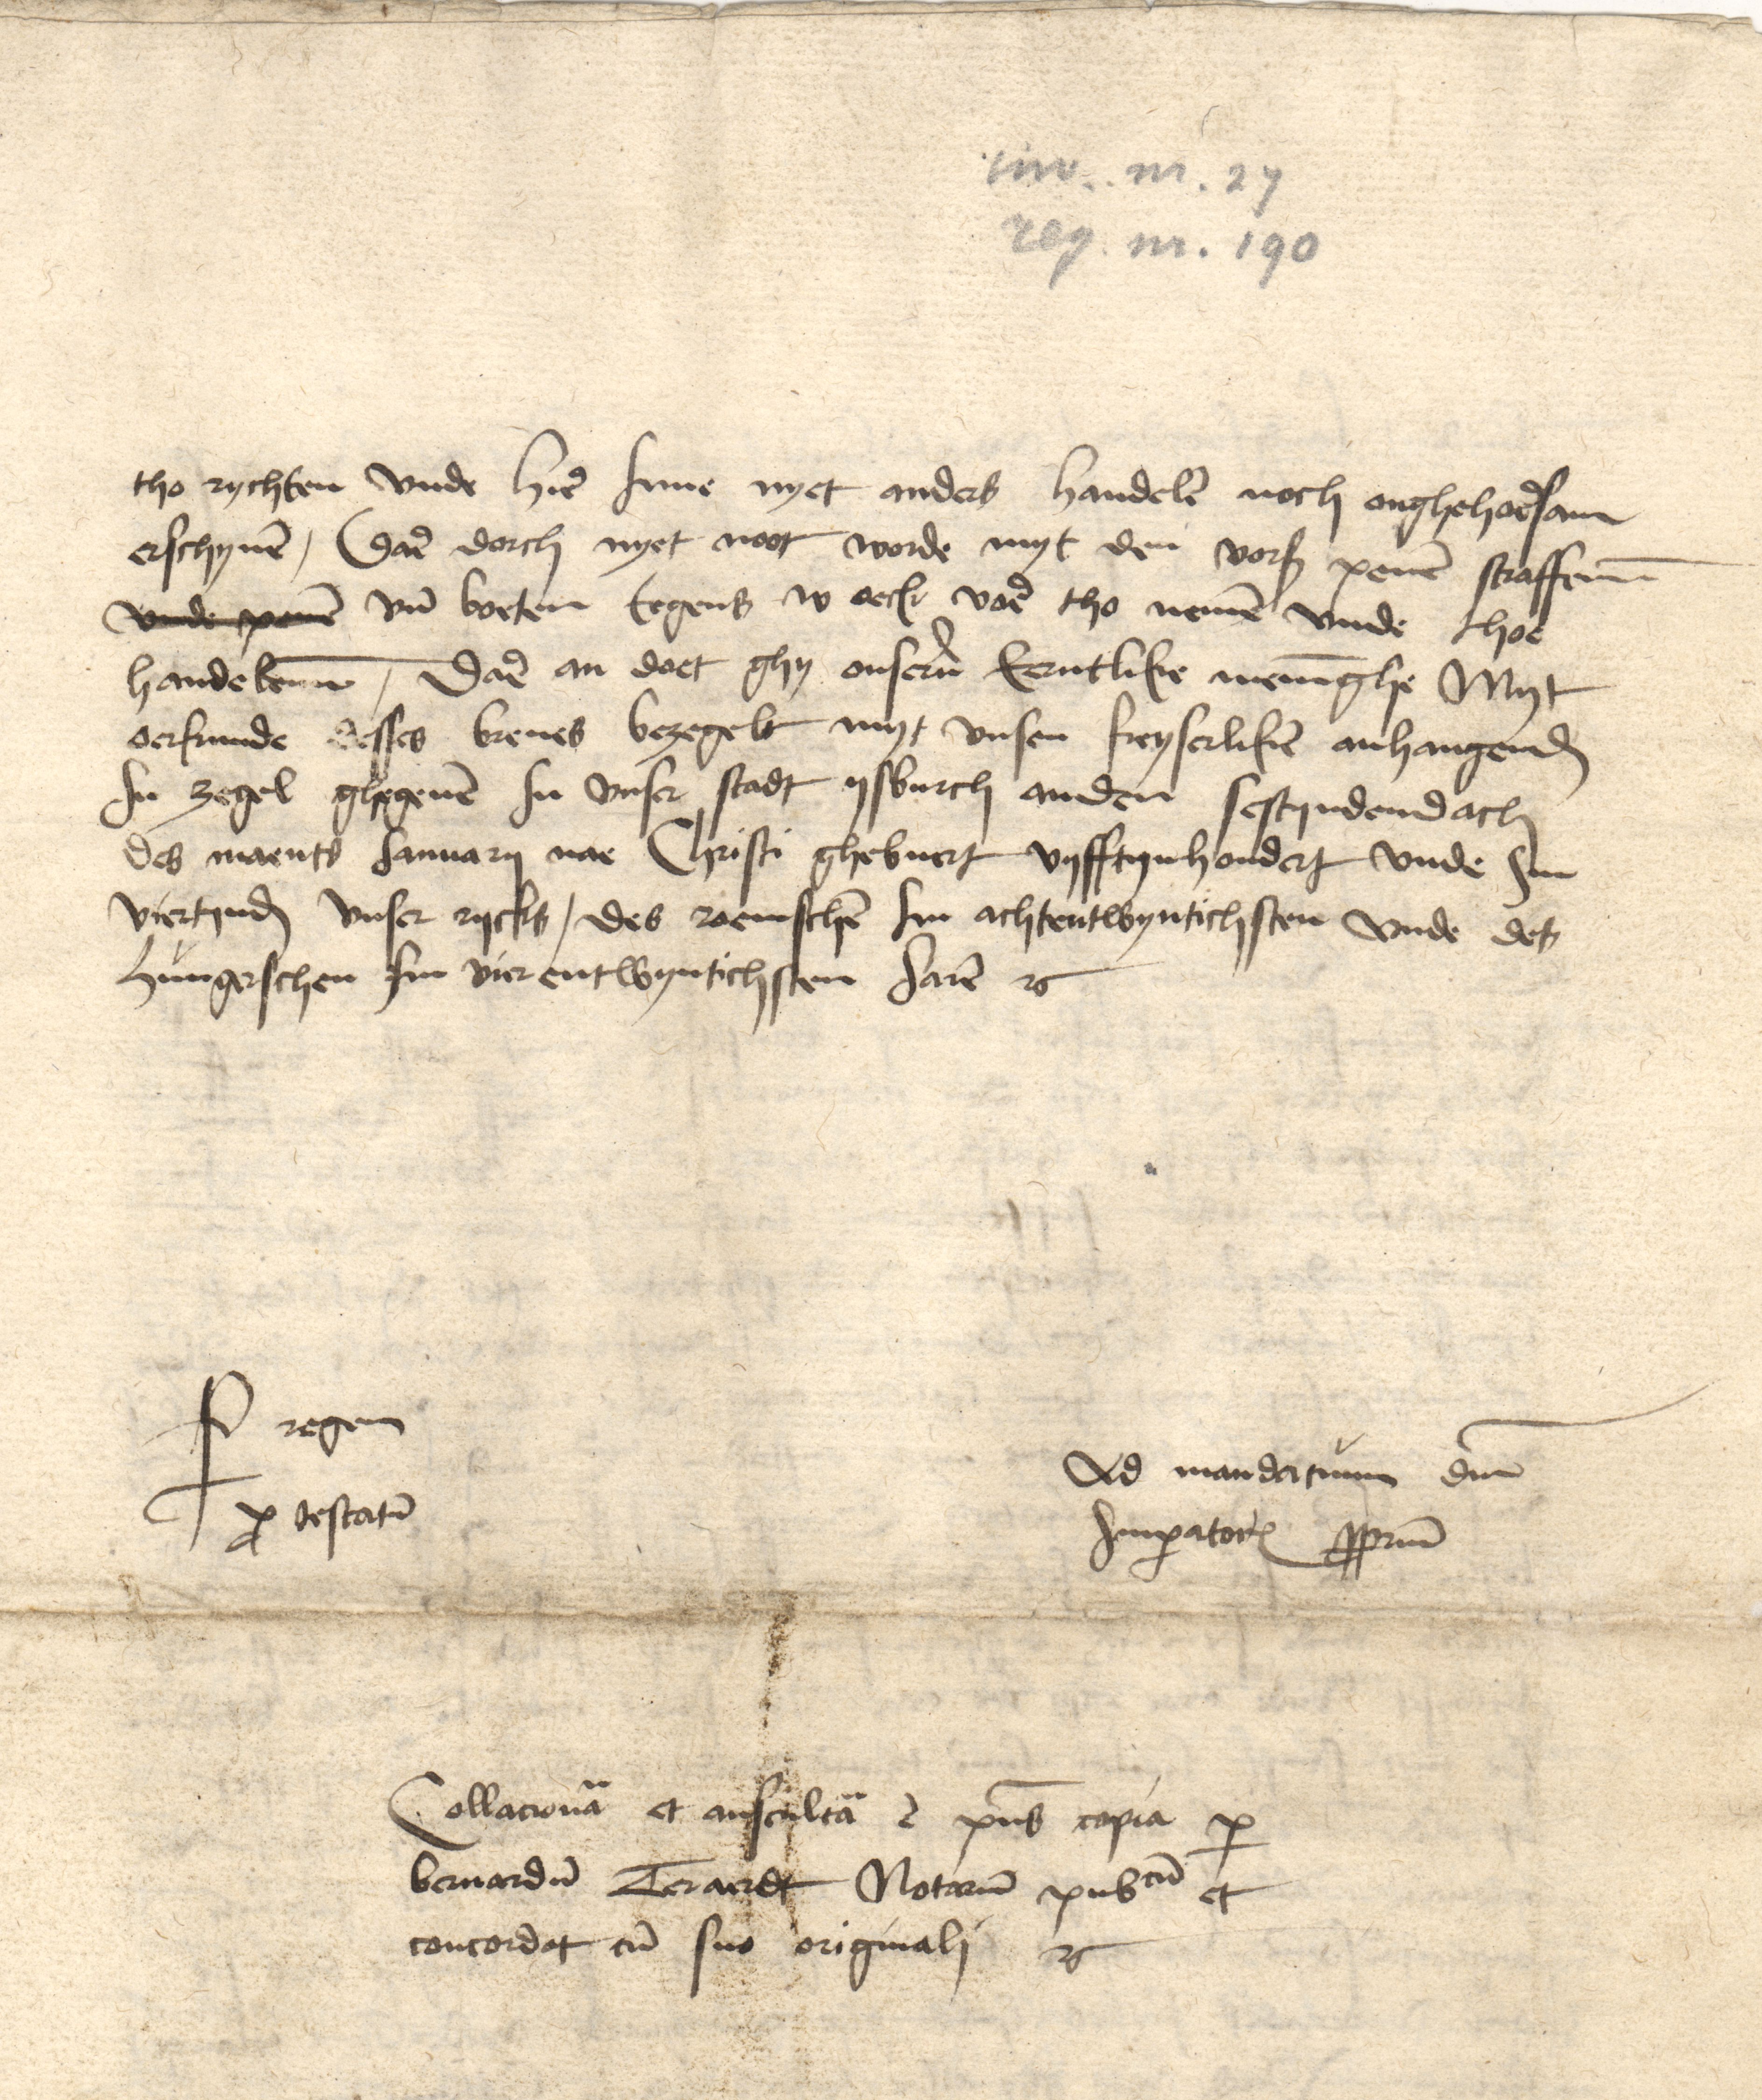 inv. nr. 27
reg. nr. 190
tho rychten vnde hiē Inne nyet anders handelē noch onghehoersam
erschynē / Daē dorch nyet noot worde myt den vors penē straffenn
vnde penē vn̄ boeten tegens w oeck voē tho nemē vnde thoe
handelenn / Daē an doet ghy onsern̄ Eerntlike menīghe Myt
oerkunde desses breues bezegelt myt vnsen keyserlikē anhangend
In zegel ghegeuē In vnser stadt ysburch anden sestyndendach
des maents January nae Christi ghebuert vyfftynhondert vnde Im
viertynd vnser rycks / des roemschē Im achtentwyntichsten vnde des
hungerschen Im vierentwyntichsten Jarē etc
P regem
p testatū
Ad mandatum dm̄
Imperatoris ppriū
Collacionā et auscultā ē pn̄s copia p
bernardū Teraerdt Notariū pubcū et
concordat cū suo originali etc